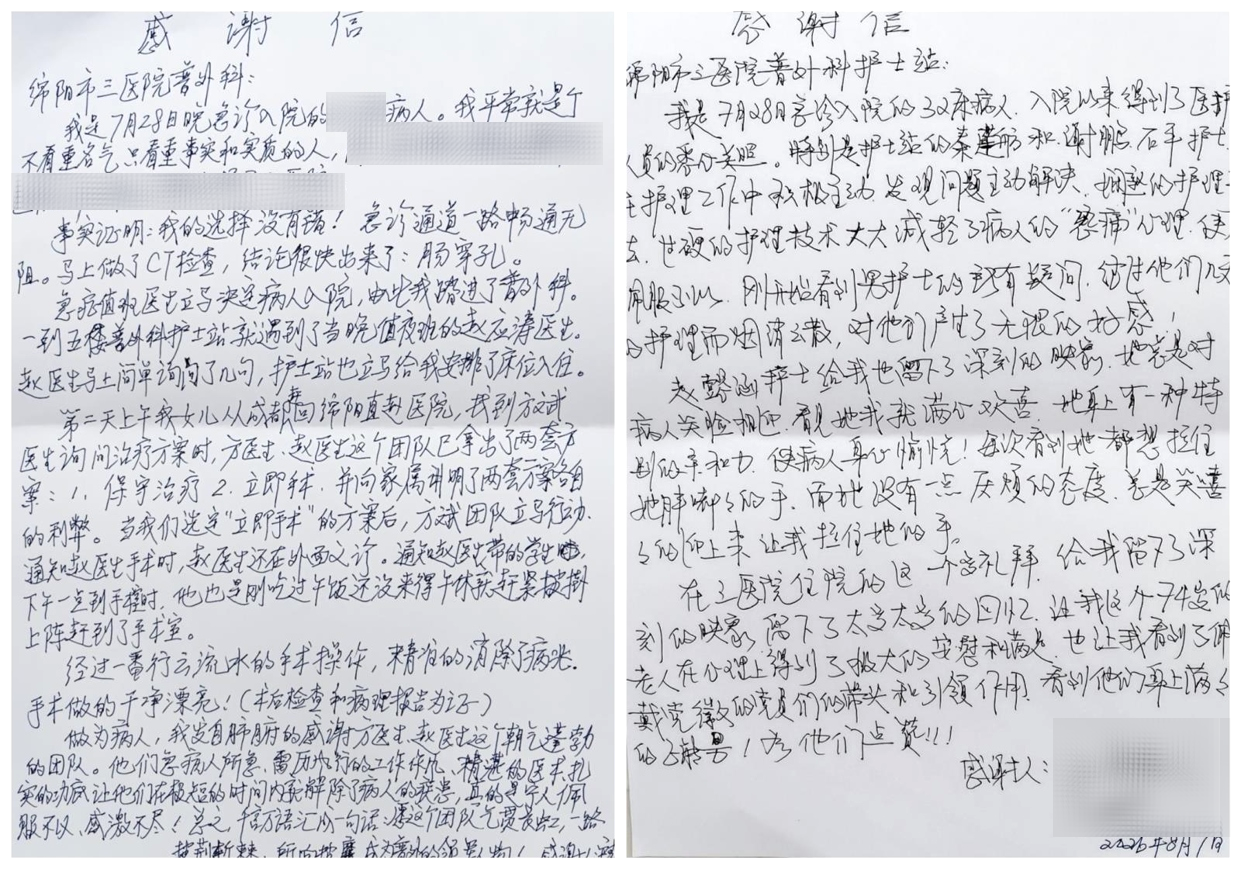 感谢信
绵阳市三医院普外科：
我是7月28日晚急诊入院的 病人。我平常就是个
不看重名气只看重事实和实质的人，
事实证明：我的选择没有错！急诊通道一路畅通无
阻。马上做了CT检查，结论很快出来了：肠穿孔。
急诊值班医生立马决定病人入院，由此我踏进了普外科。
一到五楼普外科护士站就遇到了当晚值夜班的赵应涛医生。
赵医生马上简单询问了几句，护士站也立马给我安排了床位入住。
第二天上午我女儿从成都回绵阳直赴医院，找到方斌
医生询问治疗方案时，方医生、赵医生这个团队已拿出了两套方
案：1、保守治疗 2、立即手术。并向家属讲明了两套方案各自
的利弊。当我们选定“立即手术”的方案后，方斌团队立马行动。
通知赵医生手术时，赵医生还在外面义诊。通知赵医生带的学生
下午一点到手术时，他也是刚吃过午饭还没来得午休就赶紧披掛
上阵赶到了手术室。
经过一番行云流水的手术操作，精准的消除了病灶。
手术做的干净漂亮！（术后检查和病理报告为证）
做为病人，我发自肺腑的感谢方医生、赵医生这个朝气蓬勃
的团队。他们急病人所急、雷厉风行的工作作风，精湛的医术，扎
实的功底让他们在极短的时间内就解除了病人的疾患，真的是令人佩
服不以、感激不尽！总之，千言万语汇成一句话：愿这个团队气贯长虹，一路
披荆斩棘、所向披靡
感谢信
绵阳市三医院普外科护士站：
我是7月28日急诊入院的32床病人。入院以来得到了医护
人员的悉心关照。特别是护士站的秦 和谢鹏、石平护士
在护理工作中积极主动，发现问题主动解决，娴熟的护理
过硬的护理技术大大减轻了病人的“ ”心理，使
佩服不以。刚开始看到男护士的我有疑问，经过他们几天
的护理而烟消云散，对他们产生了无限的好感！
赵 涵护士给我也留下了深刻的映象，她总是对
病人笑脸相迎，看见她我就满心欢喜，她身上有一种特
别的亲和力，使病人身心愉悦！每次看到她都想拉住
她胖嘟嘟的手，而她没有一点厌烦的态度，总是笑嘻
嘻的迎上来让我拉住她的手。
在三医院住院的这一个多礼拜，给我留下了深
刻的映象，留下了太多太多的回忆，让我这个74岁的
老人在心理上得到了极大的安慰和满足，也让我看到了佩
戴党徽的党员们的带头和引领作用，看到他们身上满满
的正能量！为他们点赞!!!
感谢人：
2026年8月7日